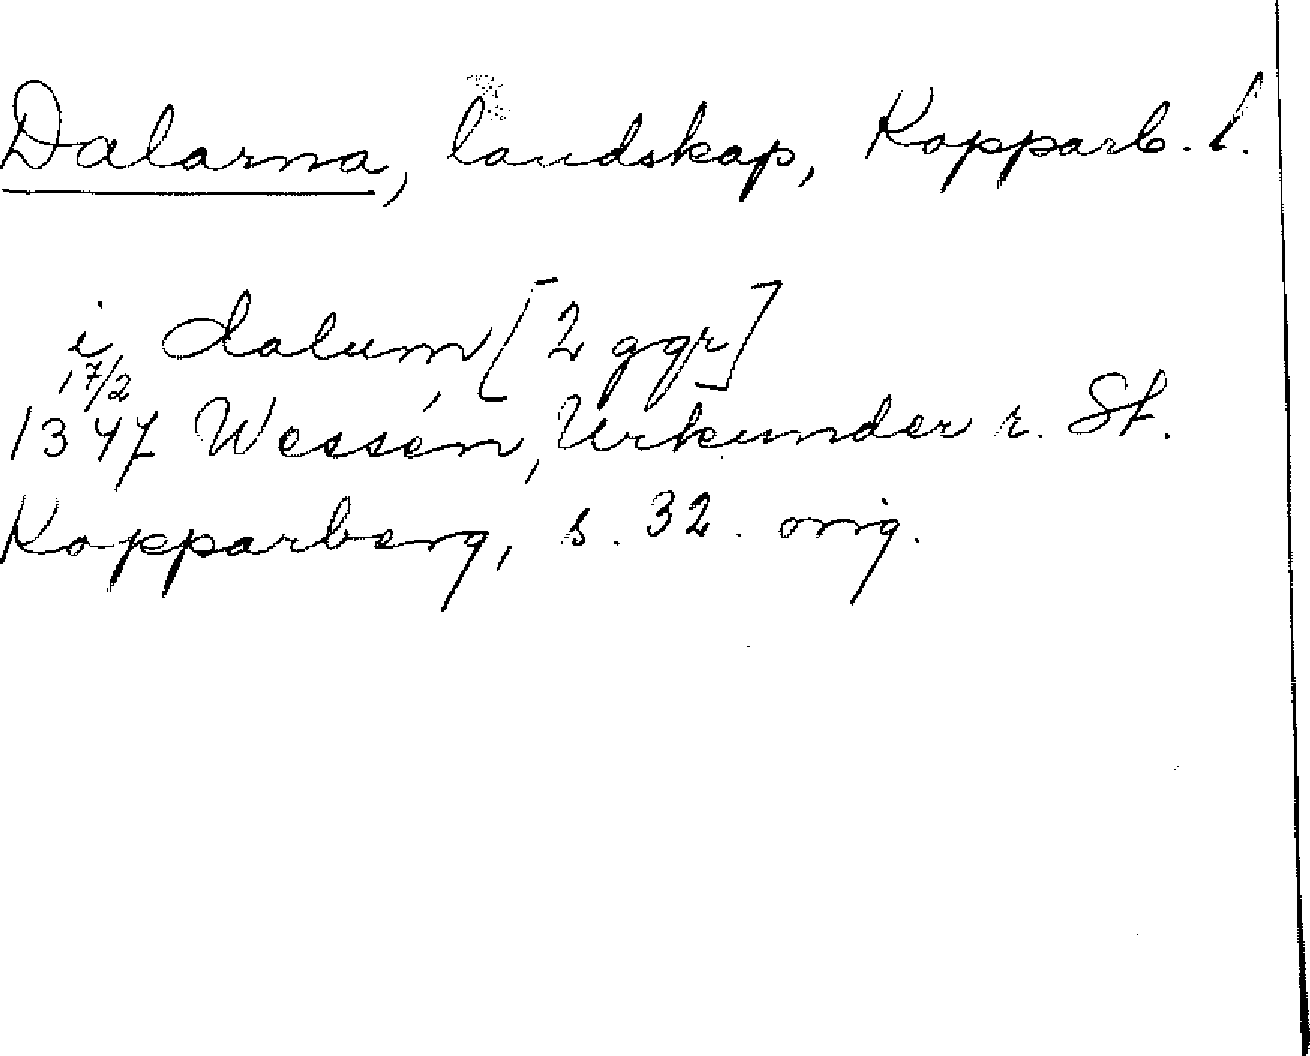 Dalarna, landskap, Kopparb. l.
i dalum [2 ggr]
17/2
1347 Wessén, Urkunder r. St.
Kopparberg, s. 32. orig.